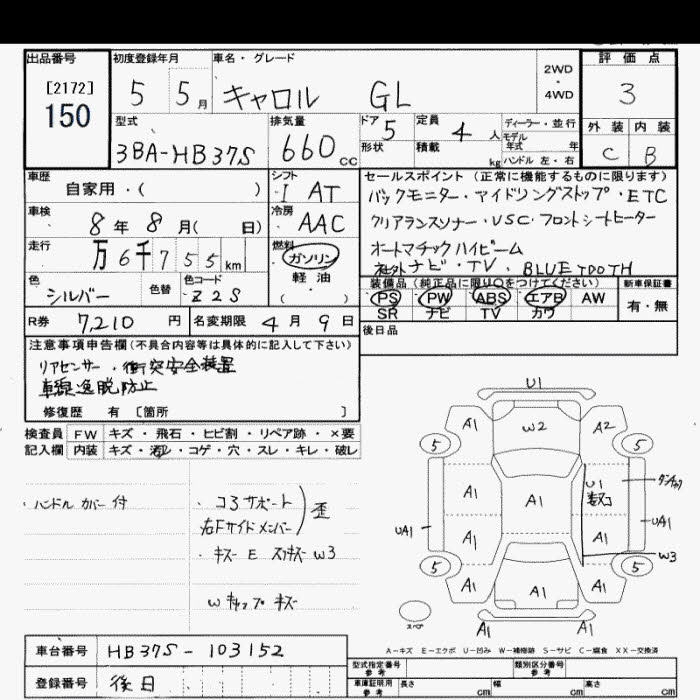 出品番号 初度登録年月 車名・グレード 評価点
[2172]
150
5 5月 キャロル GL
2WD
・
4WD
3
型式 排気量 ドア 定員 ディーラー・並行 外装 内装
3BA-HB37S 660cc 5 4人 モデル年式 年
形状 積載 kg ハンドル 左・右
C B
車歴 自家用・( )
シフト I AT
セールスポイント(正常に機能するものに限ります)
バックモニター・アイドリングストップ・ETC
車検 8年8月( 日)
冷房 AAC
クリアランスソナー・USC・フロントシートヒーター
走行 万6千755km
燃料 ガソリン
軽油
( )
オートマチックハイビーム
社外ナビ・TV、BLUETOOTH
色 シルバー 色替 色コード Z2S
装備品(純正品に限り○をつけてください) 新車保証書
PS PW ABS エアB AW 有・無
SR ナビ TV カワ
R券 7,210円 名変期限 4月9日
後日品
注意事項申告欄(不具合内容等は具体的に記入して下さい)
リアセンサー・衝突安全装置
車線逸脱防止
修復歴 有 [箇所 ]
検査員 FW キズ・飛石・ヒビ割・リペア跡・×要
記入欄 内装 キズ・汚レ・コゲ・穴・スレ・キレ・破レ
・ハンドルカバー付
・コアサポート
右Fサイドメンバー)歪
・キズ E スリキズ W3
Wキャップキズ
U1
A1 W2 A2
5 5
A1 A1 U1 数コ
UA1 A1 A1 UA1
W3
5 5
A1 A1 A1
A1 A1
スペア
A-キズ E-エクボ U-凹み W-補修跡 S-サビ C-腐食 XX-交換済
車台番号 HB37S-103152
登録番号 後日
型式指定番号 参考 類別区分番号 参考
車庫証明用 参考 長さ cm 幅 cm 高さ cm